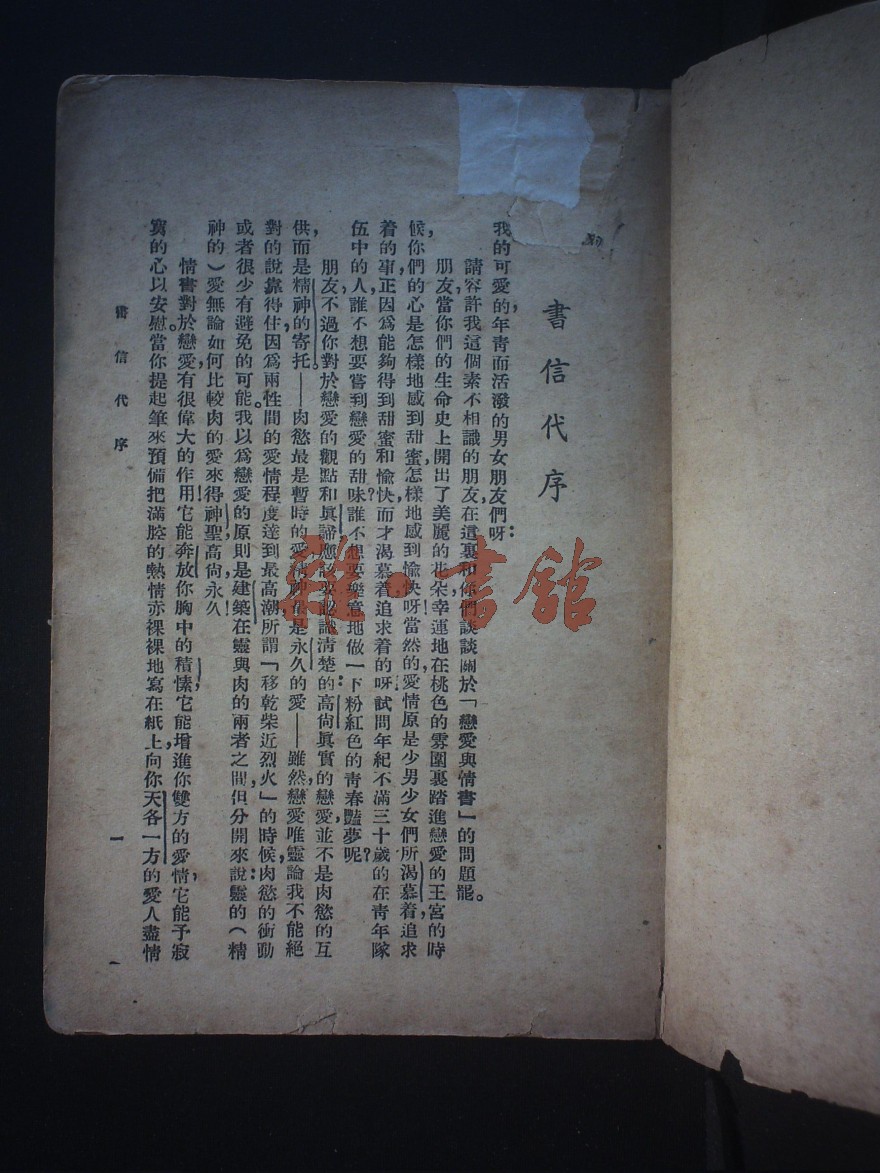 書信代序
我的可愛的,年靑而活潑的男女朋友們呀:
請容許我這個素不相識的朋友,在這裏和你們談談關於「戀愛與情書」的問題罷。
朋友,當你們的生命史上開出了美麗的花朵,幸運地在桃色的雰圍裏踏進戀愛的王宮的時
候,你們的心是怎樣地感到甜蜜,怎樣地感到愉快呀!當然的,愛情原是少男少女們所渴慕着,追求
着的事,正因爲能夠得到甜蜜和愉快,而才渴慕着追求着的呀!試問年紀不滿三十歲的在靑年隊
伍中的人,誰不想要嘗到戀愛的甜味?誰不想要樂意地做一下粉紅色的靑春豔夢呢?
朋友,不過你對於戀愛的觀點和眞諦,應該要認識淸楚的:高尙眞實的戀愛,並不是肉慾的互
供,而是精神的寄托。——肉慾最是暫時的愛,精神最是永久的愛——雖然,戀愛唯靈論我不能絕
對的說靠得住,因爲兩性間的愛情程度達到最高潮,所謂「移乾柴近烈火」的時候,肉慾的衝動
或者很少有避免的可能。我以爲戀愛的原則是建築在靈與肉的兩者之間,但分開來說:靈的(精
神的)愛無論如何比較肉的愛來得神聖,高尙,永久!
情書對於戀愛,有很偉大的作用!它能奔放你胸中的積愫,它能增進你雙方的愛情,它能予寂
寞的心以安慰。當你提起筆來預備把滿腔的熱情赤裸裸地寫在紙上,向你天各一方的愛人盡情
書信代序
一
一
雜·書館